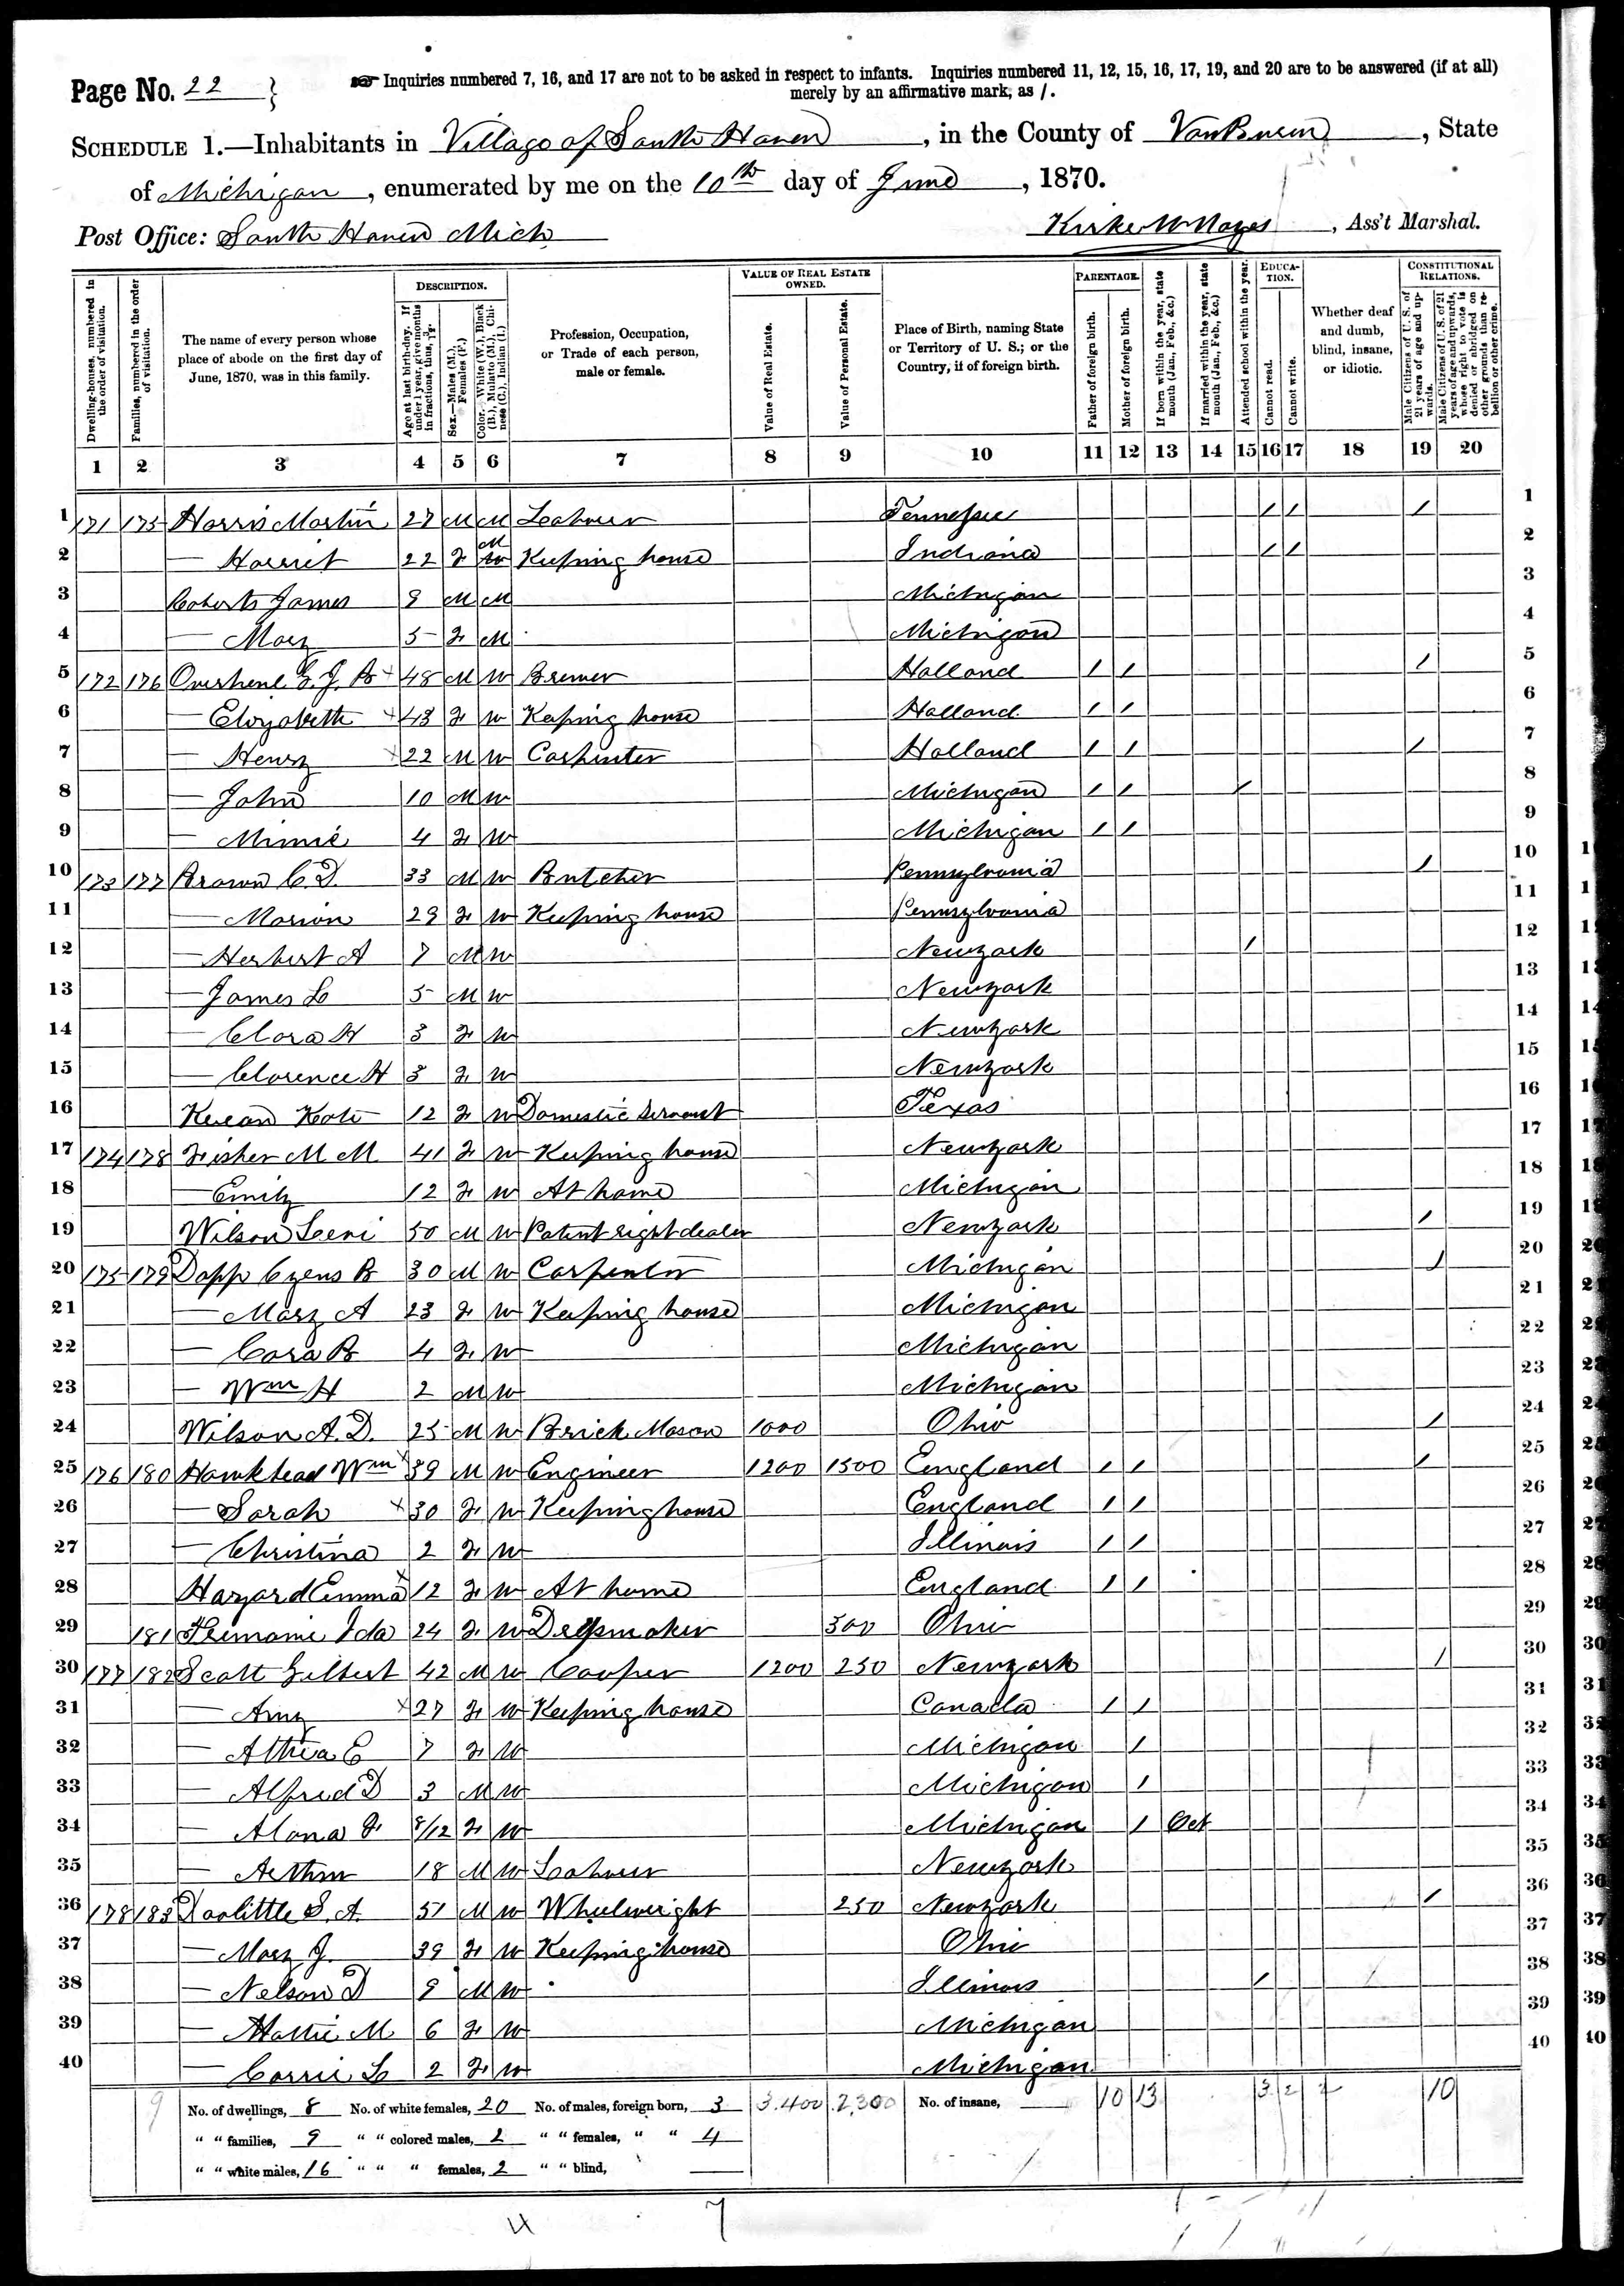 Page No. 22 }
☞ Inquiries numbered 7, 16, and 17 are not to be asked in respect to infants. Inquiries numbered 11, 12, 15, 16, 17, 19, and 20 are to be answered (if at all)
merely by an affirmative mark, as /.
SCHEDULE 1.—Inhabitants in Village of South Haven, in the County of VanBuren, State
of Michigan, enumerated by me on the 10th day of June, 1870.
Post Office: South Haven Mich
Kirke W Noyes, Ass't Marshal.
DESCRIPTION.
VALUE OF REAL ESTATE OWNED.
PARENTAGE.
EDUCATION.
CONSTITUTIONAL RELATIONS.
Dwelling-houses, numbered in the order of visitation.
Families, numbered in the order of visitation.
The name of every person whose place of abode on the first day of June, 1870, was in this family.
Age at last birth-day. If under 1 year, give months in fractions, thus, 3/12.
Sex.—Males (M.), Females (F.)
Color.—White (W.), Black (B.), Mulatto (M.), Chinese (C.), Indian (I.)
Profession, Occupation, or Trade of each person, male or female.
Value of Real Estate.
Value of Personal Estate.
Place of Birth, naming State or Territory of U. S.; or the Country, if of foreign birth.
Father of foreign birth.
Mother of foreign birth.
If born within the year, state month (Jan., Feb., &c.)
If married within the year, state month (Jan., Feb., &c.)
Attended school within the year.
Cannot read.
Cannot write.
Whether deaf and dumb, blind, insane, or idiotic.
Male Citizens of U. S. of 21 years of age and upwards.
Male Citizens of U. S. of 21 years of age and upwards, whose right to vote is denied or abridged on other grounds than rebellion or other crime.
1 2 3 4 5 6 7 8 9 10 11 12 13 14 15 16 17 18 19 20
1 171 175 Harris Martin 27 M M Labourer Tennessee / / / 1
2 — Harriet 22 F M Keeping house Indiana / / 2
3 Roberts James 9 M M Michigan 3
4 — Mary 5 F M Michigan 4
5 172 176 G. J. B 48 M W Brewer Holland / / / 5
6 — Elizabeth 43 F W Keeping house Holland / / 6
7 — Henry 22 M W Carpenter Holland / / / 7
8 — John 10 M W Michigan / / / 8
9 — Minnie 4 F W Michigan / / 9
10 173 177 Brown C. D. 33 M W Butcher Pennsylvania / 10
11 — Marion 29 F W Keeping house Pennsylvania 11
12 — Herbert A 7 M W Newyork / 12
13 — James L 5 M W Newyork 13
14 — Clara H 3 F W Newyork 14
15 — Clarence H 3 F W Newyork 15
16 Kate 12 F W Domestic servant Texas 16
17 174 178 Fisher M M 41 F W Keeping house Newyork 17
18 — Emily 12 F W At home Michigan 18
19 Wilson Levi 50 M W Patent right dealer Newyork / 19
20 175 179 Dapp Cyrus B 30 M W Carpenter Michigan / 20
21 — Mary A 23 F W Keeping house Michigan 21
22 — Cora B 4 F W Michigan 22
23 — Wm H 2 M W Michigan 23
24 Wilson A. D. 25 M W Brick Mason 1000 Ohio / 24
25 176 180 Hawkhead Wm 39 M W Engineer 1200 1500 England / / / 25
26 — Sarah 30 F W Keeping house England / / 26
27 — Christina 2 F W Illinois / / 27
28 Hazard Emma 12 F W At home England / / 28
29 181 Ida 24 F W Dressmaker 300 Ohio 29
30 177 182 Scott Gilbert 42 M W Cooper 1200 250 Newyork / 30
31 — Amy 27 F W Keeping house Canada / / 31
32 — Althea E 7 F W Michigan / 32
33 — Alfred D 3 M W Michigan / 33
34 — Alana F 8/12 F W Michigan / Oct 34
35 — Arthur 18 M W Labourer Newyork 35
36 178 183 Doolittle S. A. 51 M W Wheelwright 250 Newyork / 36
37 — Mary J. 39 F W Keeping house Ohio 37
38 — Nelson D 9 M W Illinois / 38
39 — Hattie M 6 F W Michigan 39
40 — Carrie L 2 F W Michigan 40
9 No. of dwellings, 8 No. of white females, 20 No. of males, foreign born, 3 3.400 2,300 No. of insane, 10 13 3 2 2 10
" " families, 9 " " colored males, 2 " " females, " " 4
" " white males, 16 " " " females, 2 " " blind,
7